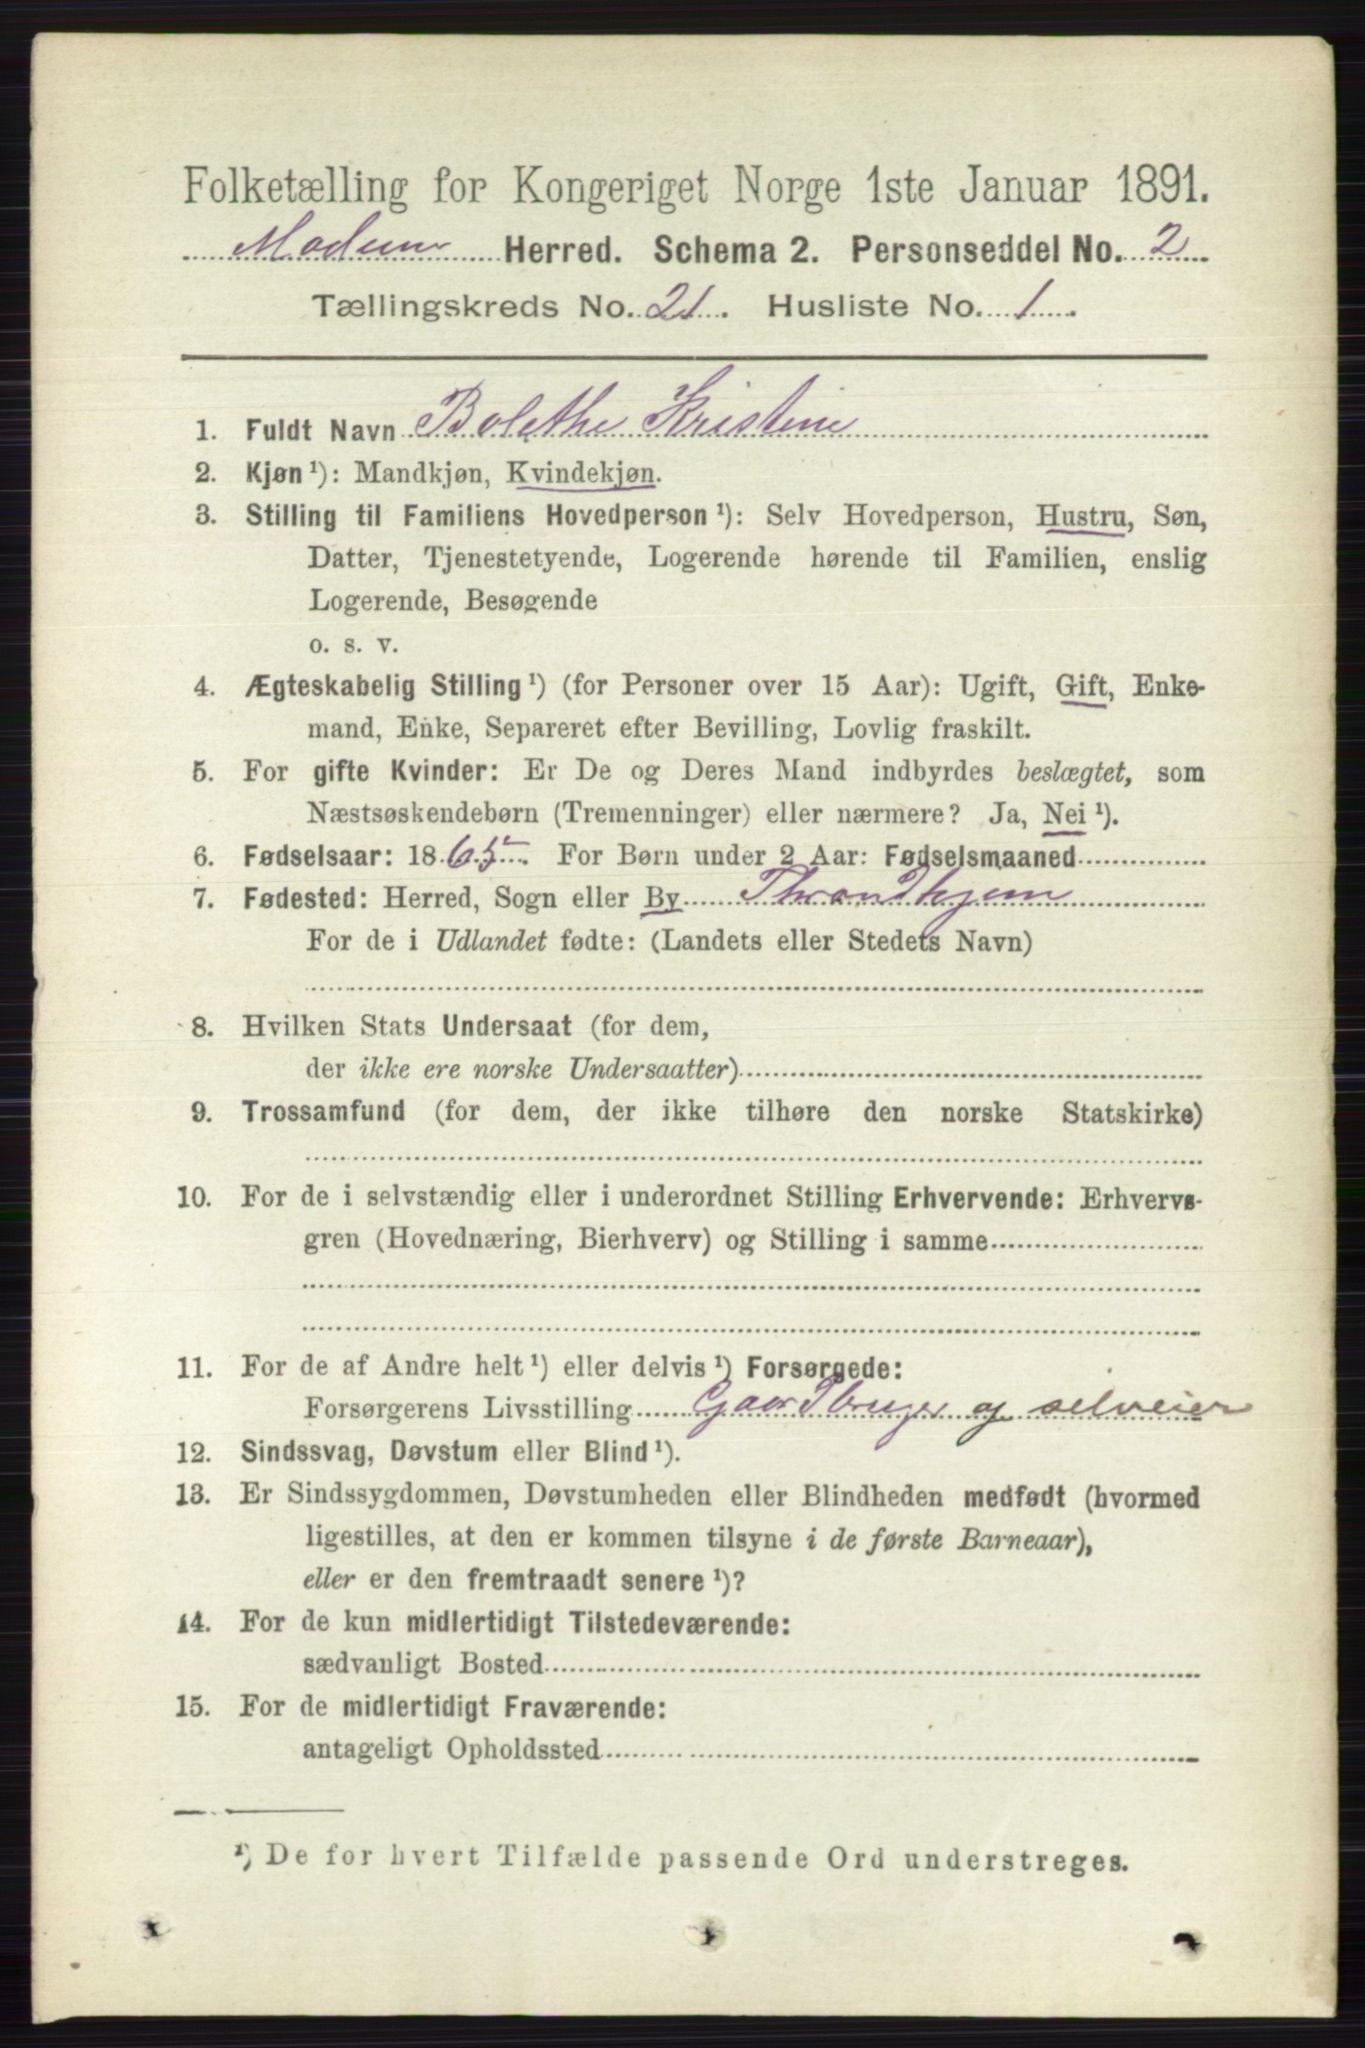 Folketælling for Kongeriget Norge 1ste Januar 1891.
Modum Herred. Schema 2. Personseddel No. 2
Tællingskreds No. 21. Husliste No. 1.
1. Fuldt Navn Bolethe Kristine
2. Kjøn ¹): Mandkjøn, Kvindekjøn.
3. Stilling til Familiens Hovedperson ¹): Selv Hovedperson, Hustru, Søn,
Datter, Tjenestetyende, Logerende hørende til Familien, enslig
Logerende, Besøgende
o. s. v.
4. Ægteskabelig Stilling ¹) (for Personer over 15 Aar): Ugift, Gift, Enke-
mand, Enke, Separeret efter Bevilling, Lovlig fraskilt.
5. For gifte Kvinder: Er De og Deres Mand indbyrdes beslægtet, som
Næstsøskendebørn (Tremenninger) eller nærmere? Ja, Nei ¹).
6. Fødselsaar: 1865. For Børn under 2 Aar: Fødselsmaaned
7. Fødested: Herred, Sogn eller By Throndhjem
For de i Udlandet fødte: (Landets eller Stedets Navn)
8. Hvilken Stats Undersaat (for dem,
der ikke ere norske Undersaatter)
9. Trossamfund (for dem, der ikke tilhøre den norske Statskirke)
10. For de i selvstændig eller i underordnet Stilling Erhvervende: Erhvervs-
gren (Hovednæring, Bierhverv) og Stilling i samme
11. For de af Andre helt ¹) eller delvis ¹) Forsørgede:
Forsørgerens Livsstilling Gaardbruger og selveier
12. Sindssvag, Døvstum eller Blind ¹).
13. Er Sindssygdommen, Døvstumheden eller Blindheden medfødt (hvormed
ligestilles, at den er kommen tilsyne i de første Barneaar),
eller er den fremtraadt senere ¹)?
14. For de kun midlertidigt Tilstedeværende:
sædvanligt Bosted
15. For de midlertidigt Fraværende:
antageligt Opholdssted
¹) De for hvert Tilfælde passende Ord understreges.